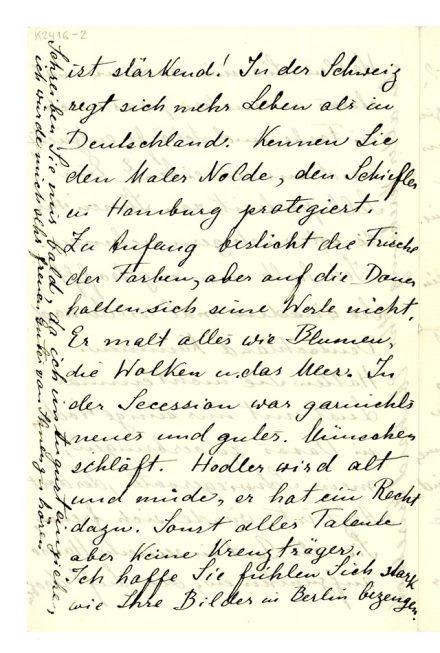 K2416-2
ist stärkend! In der Schweiz
regt sich mehr Leben als in
Deutschland. Kennen Sie
den Maler Nolde, den Schiefler
in Hamburg protegiert.
Zu Anfang besticht die Frische
der Farben, aber auf die Dauer
halten sich seine Werke nicht.
Er malt alles wie Blumen,
die Wolken u. das Meer. In
der Secession war garnichts
neues und gutes. München
schläft. Hodler wird alt
und müde, er hat ein Recht
dazu. Sonst alles Talente
aber keine Kreuzträger.
Ich hoffe Sie fühlen Sich stark
wie Ihre Bilder in Berlin bezeugen.
Schreiben Sie mir bald, da ich im August
ich würde mich sehr freuen, gutes von hören.